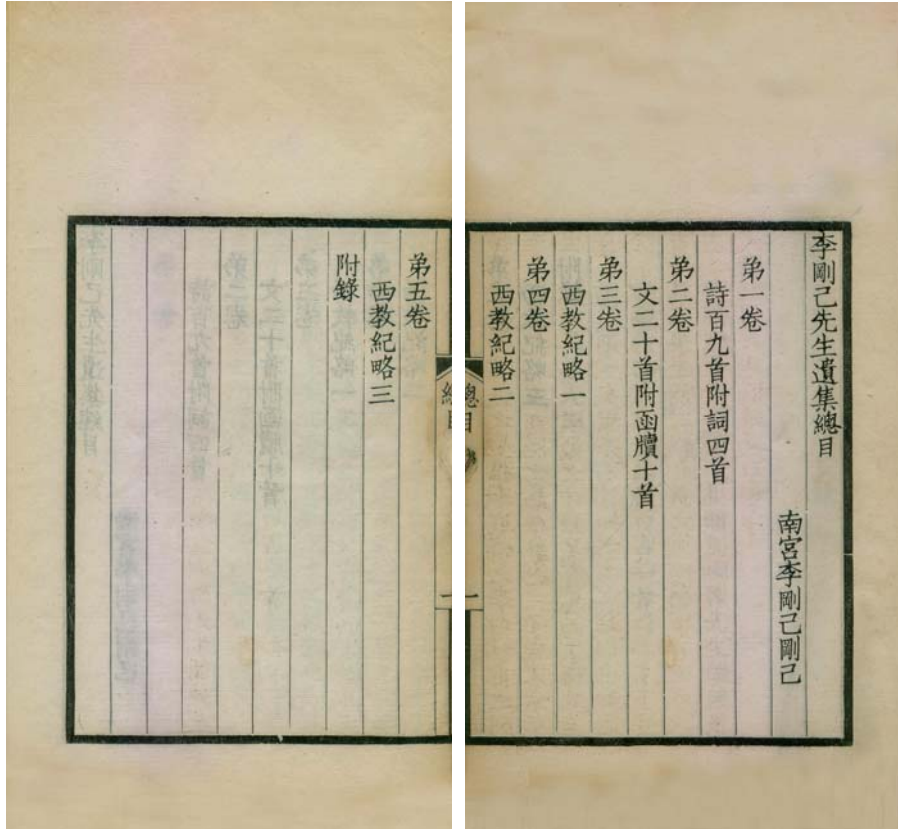 李剛己先生遺集總目
南宮李剛己剛己
弟一卷
詩百九首附詞四首
弟二卷
文二十首附函牘十首
弟三卷
西教紀略一
弟四卷
西教紀略二
總目
一
弟五卷
西教紀略三
附錄